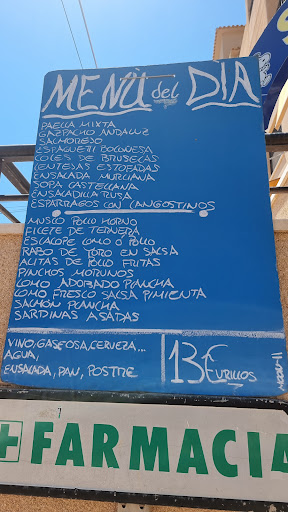 MENÚ del DIA
PAELLA MIXTA
GAZPACHO ANDALUZ
SALMOREJO
ESPAGUETI BOLOÑESA
COLES DE BRUSELAS
LENTEJAS ESTOFADAS
ENSALADA MURCIANA
SOPA CASTELLANA
ENSALADILLA RUSA
ESPARRAGOS CON LANGOSTINOS
MUSLO POLLO HORNO
FILETE DE TERNERA
ESCALOPE LOMO O POLLO
RABO DE TORO EN SALSA
ALITAS DE POLLO FRITAS
PINCHOS MORUNOS
LOMO ADOBADO PLANCHA
LOMO FRESCO SALSA PIMIENTA
SALMON PLANCHA
SARDINAS ASADAS
VINO, GASEOSA, CERVEZA,...
AGUA,
ENSALADA, PAN, POSTRE
13€
EURILLOS
FARMACIA